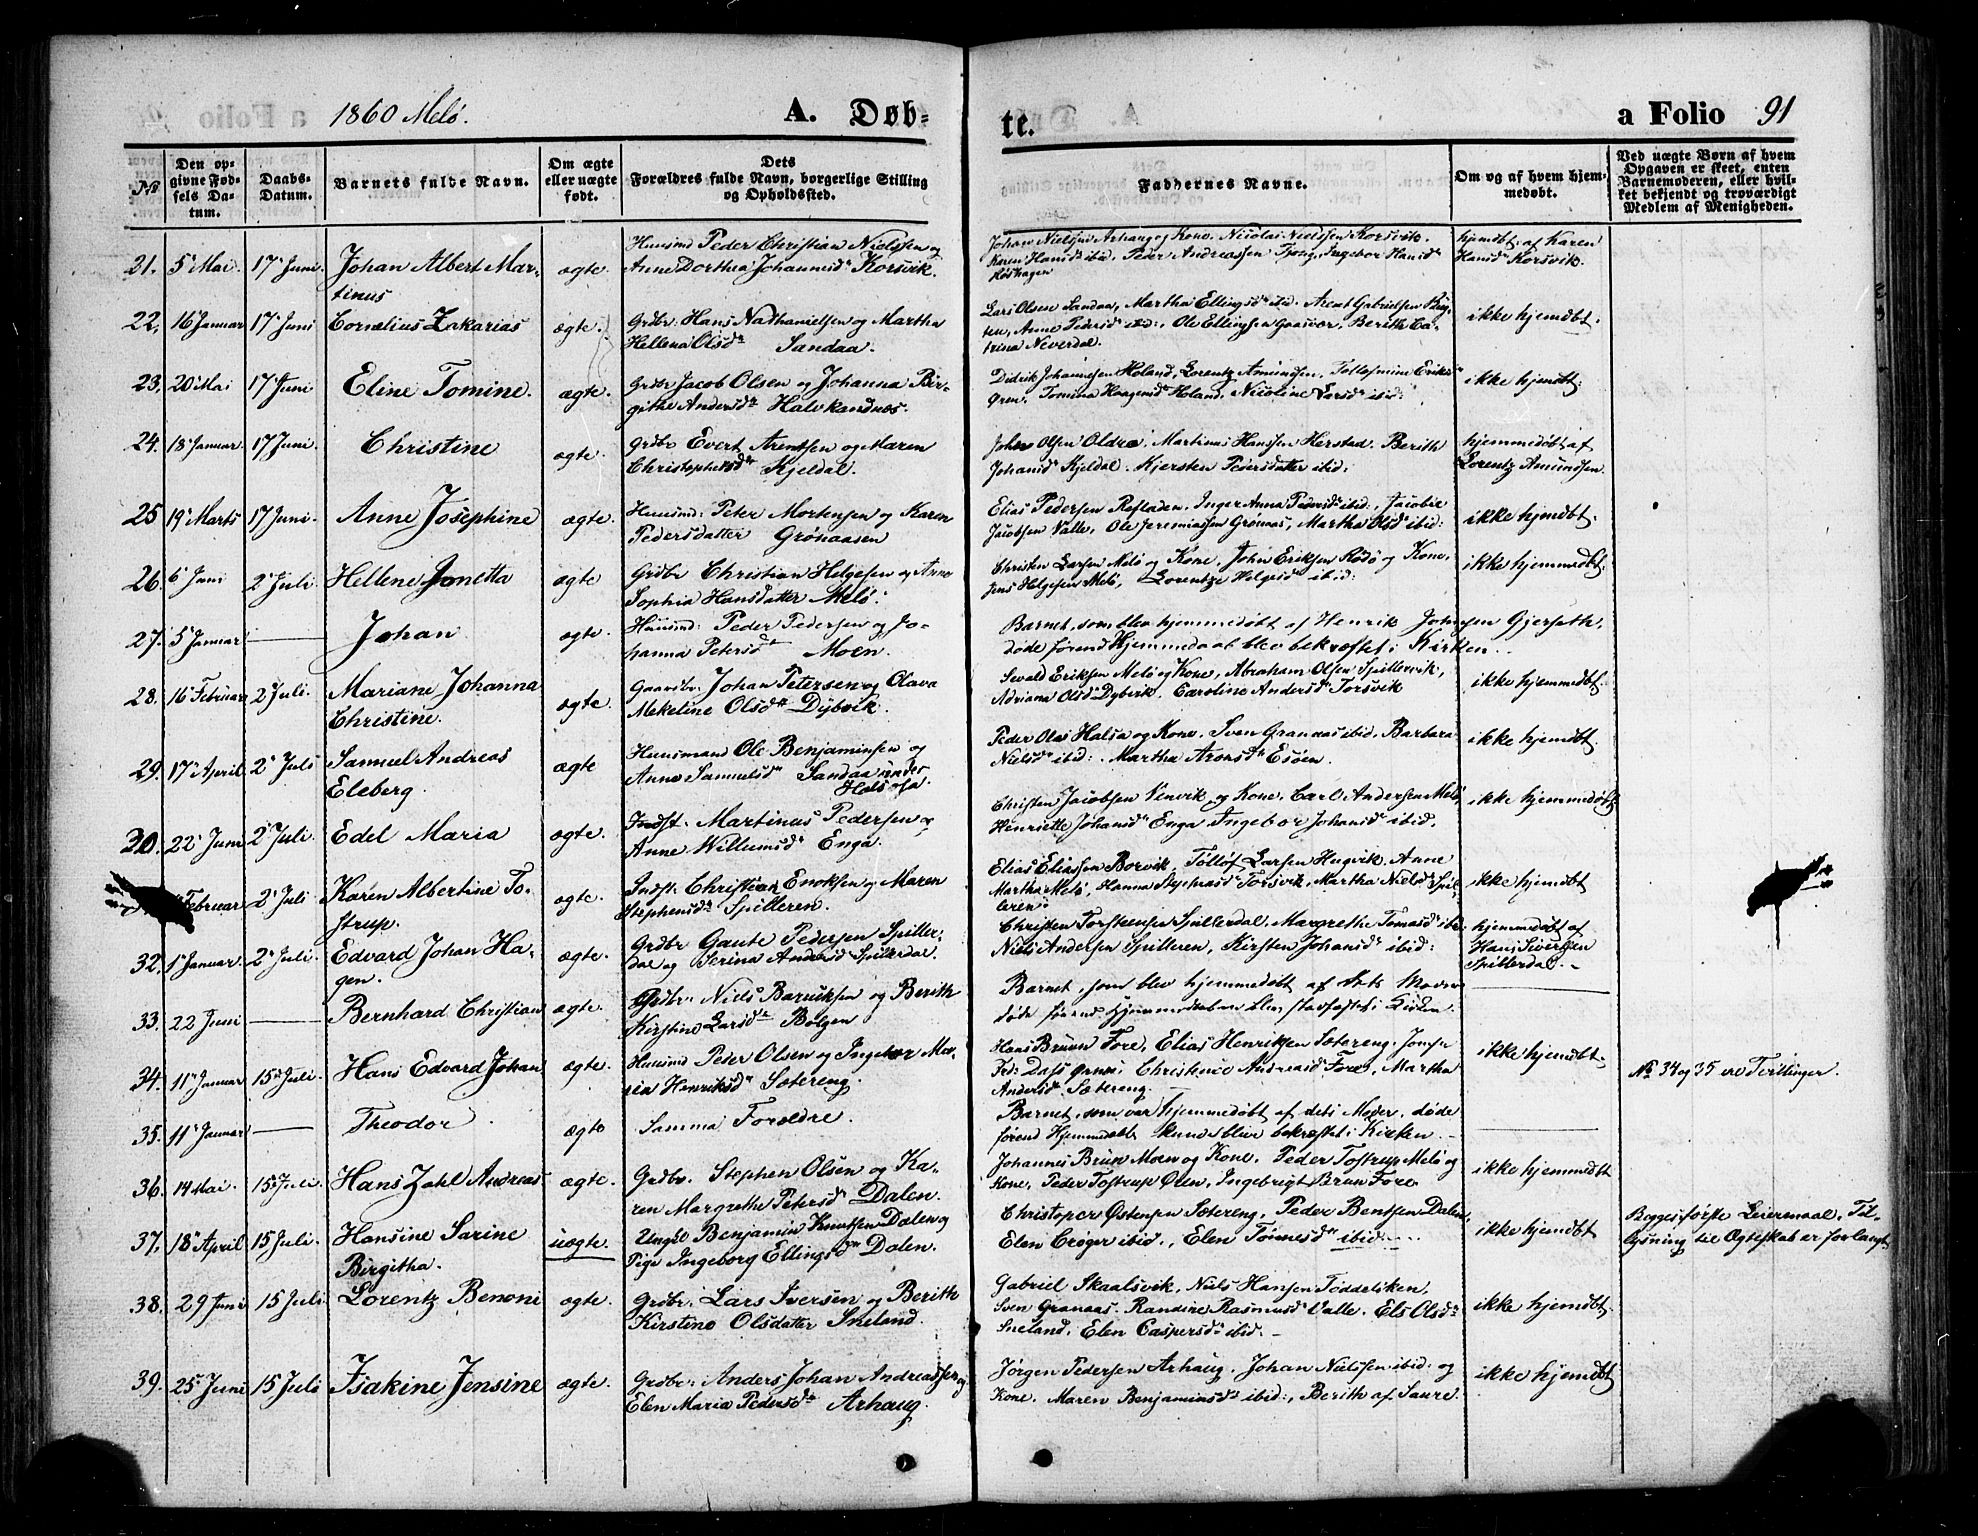 1860 Melø. A. Døb-
te. a Folio 91
No
Den op-
givne Fød-
sels Da-
tum.
Daabs-
Datum.
Barnets fulde Navn.
Om ægte
eller uægte
født.
Dets
Forældres fulde Navn, borgerlige Stilling
og Opholdssted.
Faddernes Navne.
Om og af hvem hjem-
medøbt.
Ved uægte Børn af hvem
Opgaven er skeet, enten
Barnemoderen, eller hvil-
ket bekjendt og troværdigt
Medlem af Menigheden.
21. 5 Mai 17 Juni Johan Albert Mar-
tinus
ægte
Huusmd Peder Christian Nielssen og
Anne Dorthea Johannesd. Korsvik.
Johan Nielsen Arhaug og Kone. Nicolai Nielssen Korsvik.
Karen Hansd. ibid. Peder Andreassen Tjong, Ingebor Hansd
Røshagen
hjemdbt. af Karen
Hansd Korsvik.
22. 16 Januar 17 Juni Cornelius Zakarias ægte.
Grdbr. Hans Nathanielsen og Martha
Hellena Olsdr Sandaa.
Lars Olsen Sandaa, Martha Ellingsdr ibid. Arent Gabrielsen
Anne Pedersd ibid., Ole Ellingsen Gaasvær, Berith Ca-
trina Neverdal.
ikke hjemdbt.
23. 20 Mai 17 Juni Eline Tomine. ægte.
Grdbr Jacob Olsen og Johanna Bir-
githe Andersdr Halvkandnes.
Didrik Johannesen Holand, Lorentz Amundsen, Tollef
Gren. Tomina Haagensd Holand, Nicoline ibid:
ikke hjemdbt:
24. 18 Januar 17 Juni. Christine ægte.
Grdbr Evert Arentsen og Maren
Christophersdr Kjeldal.
Johan Olsen Oldra. Martinus Hanssen Herstad. Berith
Johansd Kjeldal. Kjersten Pedersdatter ibid.
hjemmedøbt af
Lorentz Amundsen.
25 19 Marts 17 Juni. Anne Josephine ægte.
Huusmd: Peter Mortensen og Karen
Pedersdatter Grønaasen
Elias Pedersen Refladen. Inger Anna Pedersd ibid.
Jacobsen Valle, Ole Jeremiassen Grønaas, Martha Olsd ibid:
ikke hjemdbt.
26. 6 Juni 2 Juli. Hellene Jonetta ægte
Grdbr Christian Helgesen og Anne
Sophia Hansdatter Melø.
Christen Larsen Melø og Kone, Johan Eriksen Rødø og Kone.
Jens Helgesen Melø, Lorentze Helgesd ibid:
ikke hjemmedbt.
27. 5 Januar Johan ægte.
Huusmd: Peder Pedersen og Jo-
hanna Petersdr Moen.
Barnet, som blev hjemmedøbt af Henrik Johnsen Gjersøth,
døde førend Hjemmedaab blev bekræftet i Kirken.
28. 16 Februar 2 Juli. Mariane Johanna
Christine.
ægte.
Gaardbr. Johan Petersen og Olava
Mekeline Olsdr Dybvik.
Sevald Eriksen Melø og Kone, Abraham Olsen Spillervik,
Adriana Olsd Dybvik. Caroline Andersdr Torsvik
ikke hjemmedbt.
29. 17 April. 2 Juli Samuel Andreas
Eleberg.
ægte
Huusmand Ole Benjaminsen og
Anne Samuelsdr Sandaa under
Halsøsa.
Peder Olas Halsa og Kone. Sven Granaas ibid. Barbara
Nielsd ibid. Martha Aronsdr Esøen.
ikke hjemdbt.
30. 22 Juni 2 Juli. Edel Maria ægte.
Indst. Martinus Pedersen og
Anne Willumsdr Enga.
Christen Jacobsen Venvik og Kone, Carl Andersen Melø,
Henriette Johansdr Enga Ingebor Johansdr ibid.
ikke hjemmedøbt
Februar 2 Juli Karen Albertine To-
strup.
ægte.
Indst. Christian Enoksen og Maren
Stephensdr Spilleren.
Elias Eliassen Borvik, Tøllef Larsen Hugvik. Anne
Martha Melø, Hanna Stephensdr Torsvik, Martha Nielsd Spil-
leren.
ikke hjemdbt
32. 1 Januar. 2 Juli. Edvard Johan Ha-
gen.
ægte.
Grdbr Gaute Pedersen Spiller-
dal og Serina Andersd Spillerdal.
Christen Torsteensen Spillerdal. Margrethe Tomasd ibid
Niels Andersen Spilleren, Kirsten Johansd ibid:
hjemmedøbt af
Hans Sivertsen
Spillerdal.
33. 22 Juni Bernhard Christian ægte.
Grdbr. Niels Baruksen og Berith
Kirstine Larsdr Bolgen
Barnet, som blev hjemmedøbt af dets Moder
døde førend Hjemmedaaben blev stadfæstet i Kirken.
34. 11 Januar 15 Juli. Hans Edvard Johan ægte.
Huusmd Peder Olsen og Ingebor Ma-
ria Henriksdr Sætereng.
Hans Bruun Fore, Elias Henriksen Sætereng.
Dass Christence Andreasd Fore, Martha
Andersd Sætereng.
ikke hjemdbt.
No 34 og 35 ere Tvillinger.
35. 11 Januar Theodor. ægte
Samma Foreldre.
Barnet, som var hjemmedøbt af dets Moder, døde
førend Hjemmedøbt kunde blive bekræftet i Kirken.
36. 14 Mai. 15 Juli. Hans Zahl Andreas ægte.
Grdbr. Stephen Olsen og Ka-
ren Margrethe Petersdr Dalen.
Johannes Brun Moen og Kone, Peder Tostrup Melø og
Kone, Peder Tostrup Øien, Ingebrigt Brun Fore
ikke hjemmedt
37. 18 April 15 Juli. Hansine Sarine
Birgitha.
uægte.
Ungkl Benjamin Knutsen Dalen og
Pige Ingeborg Ellingsdr Dalen.
Christopher Østensen Sætereng, Peder Bentsen Dalen,
Elen Crøger ibid., Elen Tønnesd ibid.
ikke hjemdbt
Begges første Leiermaal. Til-
lysning til Ægteskab er forlangt
38. 29 Juni 15 Juli. Lorentz Benoni ægte.
Grdbr. Lars Iversen og Berith
Kirstine Olsdatter Sneland.
Gabriel Skaalsvik, Niels Hansen Toddeliken,
Sven Granaas. Randine Rasmusdr Valle. Els Olsdr
Sneland, Elen Caspersdr ibid.
ikke hjemdbt.
39. 25 Juni 15 Juli Isakine Jensine ægte.
Grdbr. Anders Johan Andreassen og
Elen Maria Pedersdr Arhaug.
Jørgen Pedersen Arhaug. Johan Nielssen ibid. og
Kone. Maren Benjaminsdr ibid., Berith af Saure.
ikke hjemdbt